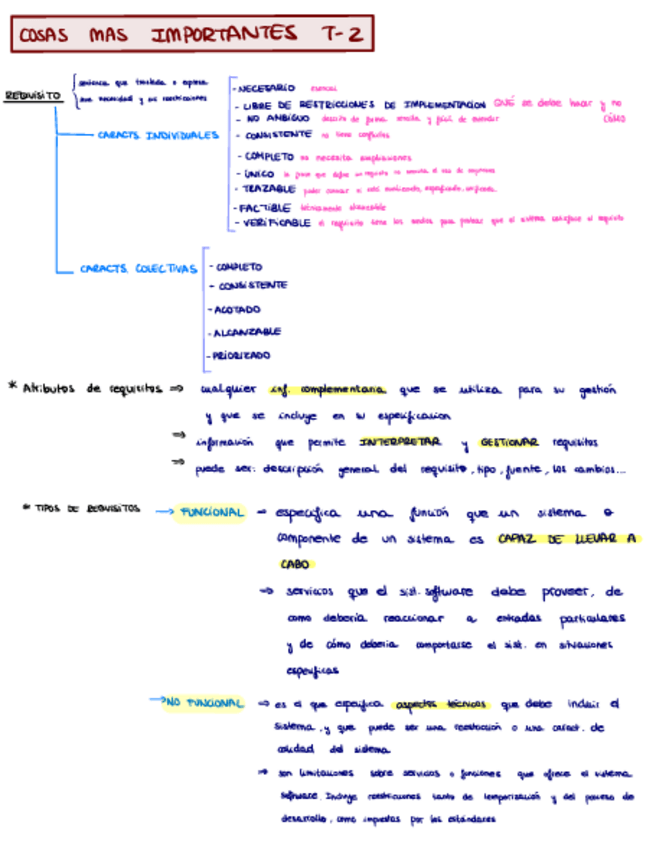 COSAS MAS IMPORTANTES T-2
REQUISITO
sentencia que traslada o expresa
una necesidad y sus restricciones
CARACTS. INDIVIDUALES
- NECESARIO esencial
- LIBRE DE RESTRICCIONES DE IMPLEMENTACIÓN QUÉ se debe hacer y no CÓMO
- NO AMBIGUO descrito de forma sencilla y fácil de entender
- CONSISTENTE no tiene conflictos
- COMPLETO no necesita ampliaciones
- ÚNICO
- TRAZABLE
- FACTIBLE técnicamente alcanzable
- VERIFICABLE el requisito tiene los medios para probar que el sistema satisface el requisito
CARACTS. COLECTIVAS
- COMPLETO
- CONSISTENTE
- ACOTADO
- ALCANZABLE
- PRIORIZADO
* Atributos de requisitos => cualquier inf. complementaria que se utiliza para su gestión
y que se incluye en su especificación
=> información que permite INTERPRETAR y GESTIONAR requisitos
=> puede ser: descripción general del requisito, tipo, fuente, los cambios...
* TIPOS DE REQUISITOS → FUNCIONAL → especifica una función que un sistema o
componente de un sistema es CAPAZ DE LLEVAR A
CABO
=> servicios que el sist. software debe proveer, de
como debería reaccionar a entradas particulares
y de cómo debería comportarse el sist. en situaciones
específicas
→ NO FUNCIONAL => es el que especifica aspectos técnicos que debe incluir el
sistema, y que puede ser una restricción o una caract. de
calidad del sistema
=> son limitaciones sobre servicios o funciones que ofrece el sistema
software. Incluye restricciones tanto de temporización y del proceso de
desarrollo, como impuestas por los estándares